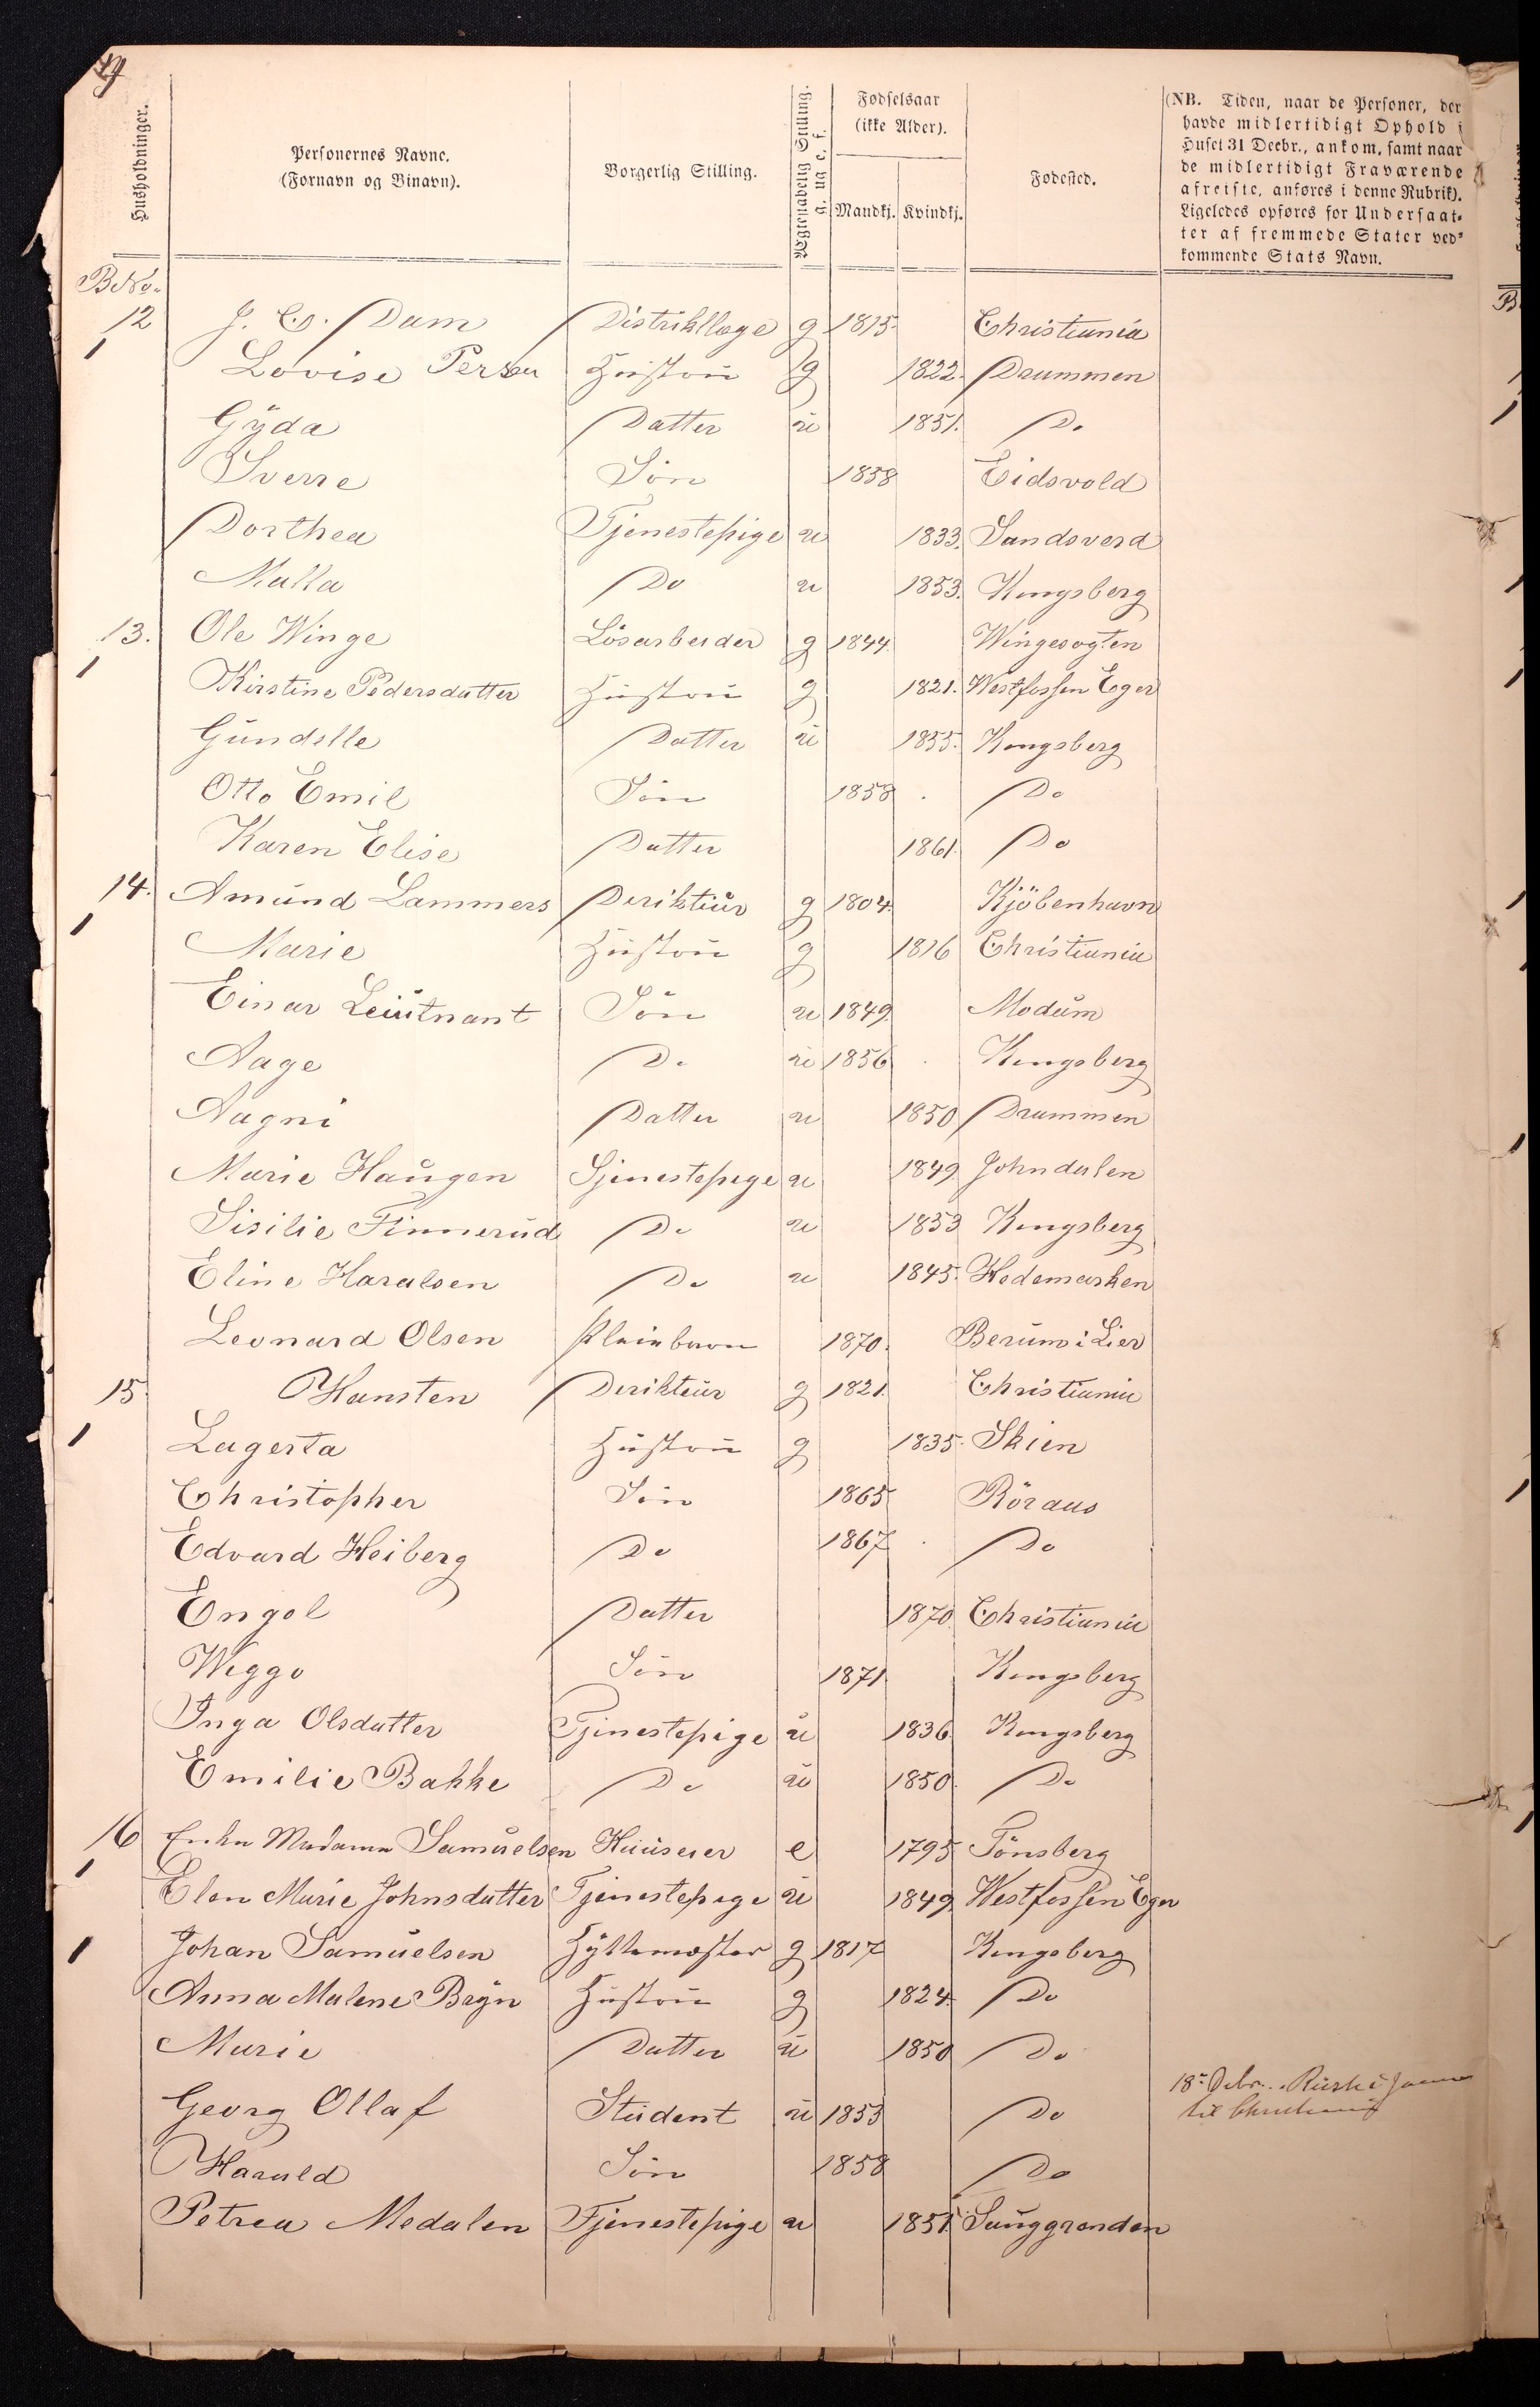 Husholdninger.
Personernes Navne.
(Fornavn og Binavn).
Borgerlig Stilling.
Ægteskabelig Stilling.
g. ug. e. f.
Fødselsaar
(ikke Alder).
Mandkj. Kvindkj.
Fødested.
(NB. Tiden, naar de Personer, der
havde midlertidigt Ophold i
Huset 31 Decbr., ankom, samt naar
de midlertidigt Fraværende
afreiste, anføres i denne Rubrik).
Ligeledes opføres for Undersaat-
ter af fremmede Stater ved-
kommende Stats Navn.
B No.
12 J. C. Dam Distriktlæge g 1815 Christiania
1 Lovise Hustru g 1822. Drammen
Gÿda Datter u 1851. Do
Sverre Sön 1858 Eidsvold
Dorthea Tjenestepige u 1833. Sandsverd
Malla Do u 1853. Kongsberg
13. Ole Winge Lösarbeider g 1844. Wingesogten
1 Kirstine Pedersdatter Hustru g 1821. Westfossen Eger
Gundelle Datter u 1855. Kongsberg
Otto Emil Sön 1858 Do
Karen Elise Datter 1861. Do
14. Amund Lammers Deriktiür g 1804. Kjöbenhavn
1 Marie Hustru g 1816 Christiania
Einar Leiutnant Sön u 1849. Modum
Aage Do u 1856 Kongsberg
Aagni Datter u 1850 Drammen
Marie Haugen Tjenestepige u 1849 Johndalen
Sisilie Finnerud Do u 1853 Kongsberg
Eline Haralsen Do u 1845. Hedemarken
Leonard Olsen Pleiebarn 1870. Berum i Lier
15. Hansten Derikteur g 1821. Christiania
1 Lagerta Hustru g 1835. Skien
Christopher Sön 1865 Röraas
Edvard Heiberg Do 1867 Do
Engel Datter 1870 Christiania
Wiggo Sön 1871. Kongsberg
Inga Olsdatter Tjenestepige u 1836 Kongsberg
Emilie Bakke Do u 1850. Do
16 Enke Madame Samuelsen Huuseier e 1795 Tönsberg
1 Elen Marie Johnsdatter Tjenestepige u 1849 Westfossen Eger
1 Johan Samuelsen Hyttemester g 1817 Kongsberg
Anna Malene Brÿn Hustru g 1824. Do
Marie Datter u 1850 Do
Georg Ollaf Student u 1853 Do 18
til
Harald Sön 1858 Do
Petrea Medalen Tjenestepige u 1851 Sauggranden